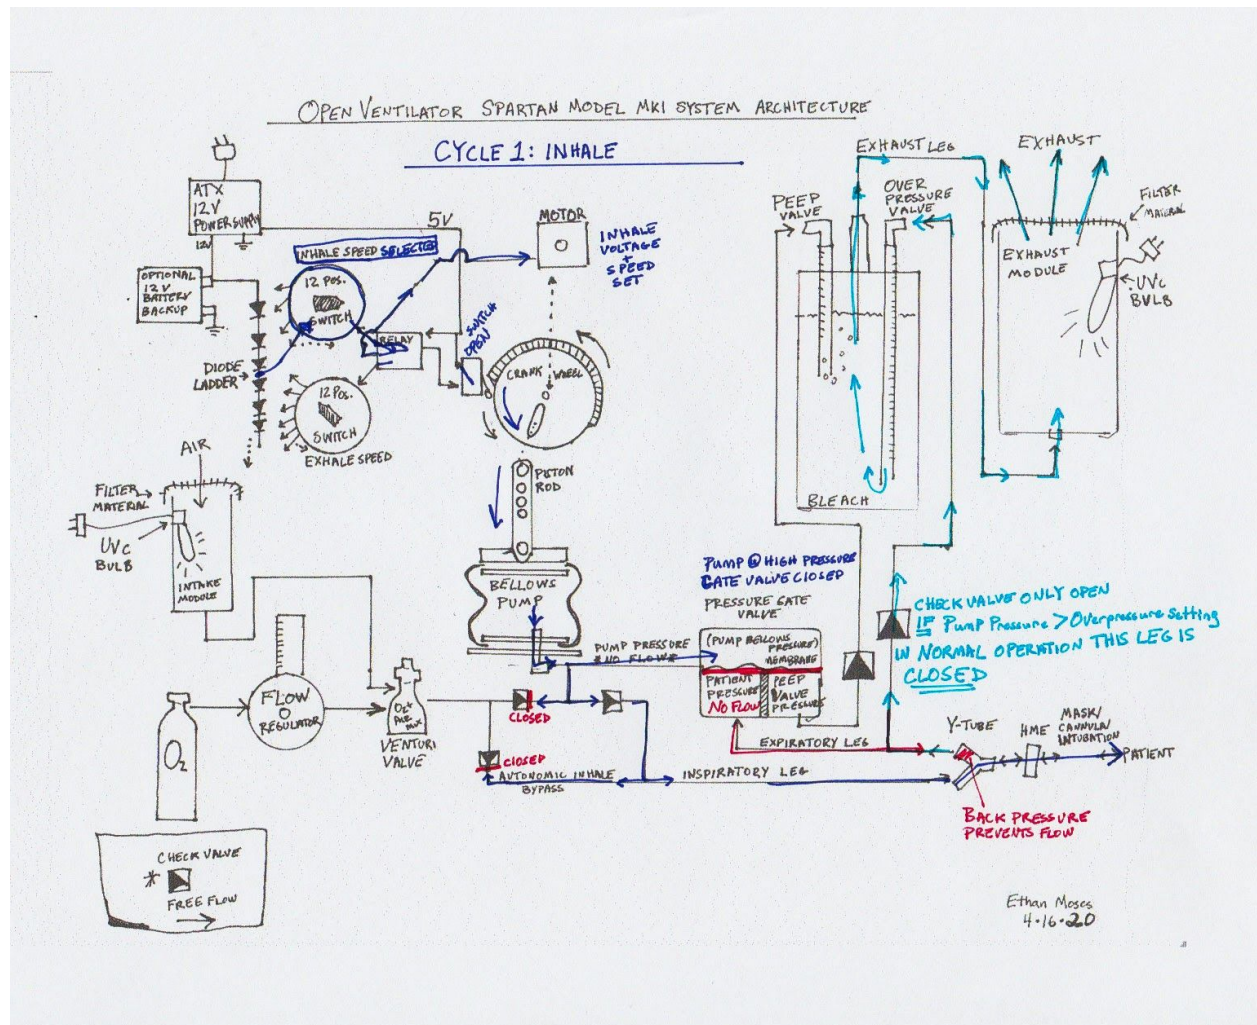 OPEN VENTILATOR SPARTAN MODEL MK1 SYSTEM ARCHITECTURE
CYCLE 1: INHALE
ATX
12V
POWER SUPPLY
12V
5V
OPTIONAL
12V
BATTERY
BACKUP
INHALE SPEED SELECTED
12 POS.
SWITCH
RELAY
DIODE
LADDER
12 POS.
SWITCH
EXHALE SPEED
MOTOR
INHALE
VOLTAGE
+
SPEED
SET
SWITCH
OPEN
CRANK WHEEL
PISTON
ROD
BELLOWS
PUMP
AIR
FILTER
MATERIAL
UVC
BULB
INTAKE
MODULE
FLOW
REGULATOR
O2
O2+
AIR
MIX
VENTURI
VALVE
CLOSED
CLOSED
AUTONOMIC INHALE
BYPASS
INSPIRATORY LEG
PUMP PRESSURE
*NO FLOW*
PUMP @ HIGH PRESSURE
GATE VALVE CLOSED
PRESSURE GATE
VALVE
(PUMP BELLOWS
PRESSURE)
MEMBRANE
PATIENT
PRESSURE
NO FLOW
PEEP
VALVE
PRESSURE
EXPIRATORY LEG
PEEP
VALVE
EXHAUST LEG
OVER
PRESSURE
VALVE
BLEACH
EXHAUST
FILTER
MATERIAL
EXHAUST
MODULE
UVC
BULB
CHECK VALVE ONLY OPEN
IF Pump Pressure > Overpressure Setting
IN NORMAL OPERATION THIS LEG IS
CLOSED
Y-TUBE
HME
MASK/
CANNULA/
INTUBATION
PATIENT
BACK PRESSURE
PREVENTS FLOW
CHECK VALVE
*
FREE FLOW
Ethan Moses
4·16·20